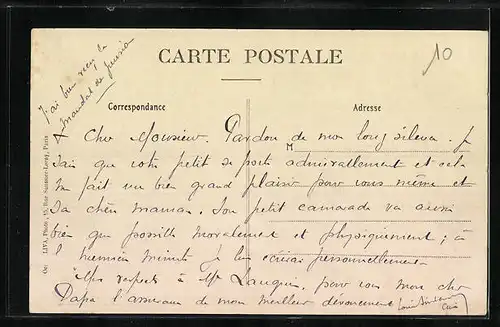 J'ai bien reçu le
mandat de
CARTE POSTALE
10
Correspondance
Adresse
M
Cher Monsieur. Pardon de mon long silence. Je
sais que votre petit se porte admirablement et cela
me fait un bien grand plaisir pour vous même et
sa chère maman. Son petit camarade va aussi
bien que possible moralement et physiquement ; à
l' minute je lui personnellement
Mes respects à Mme pour vous mon cher
Papa l' de mon meilleur dévouement
Paris